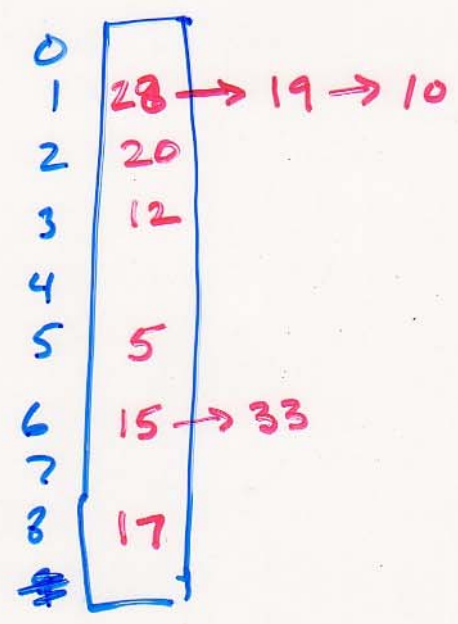 0
1 28 → 19 → 10
2 20
3 12
4
5 5
6 15 → 33
7
8 17